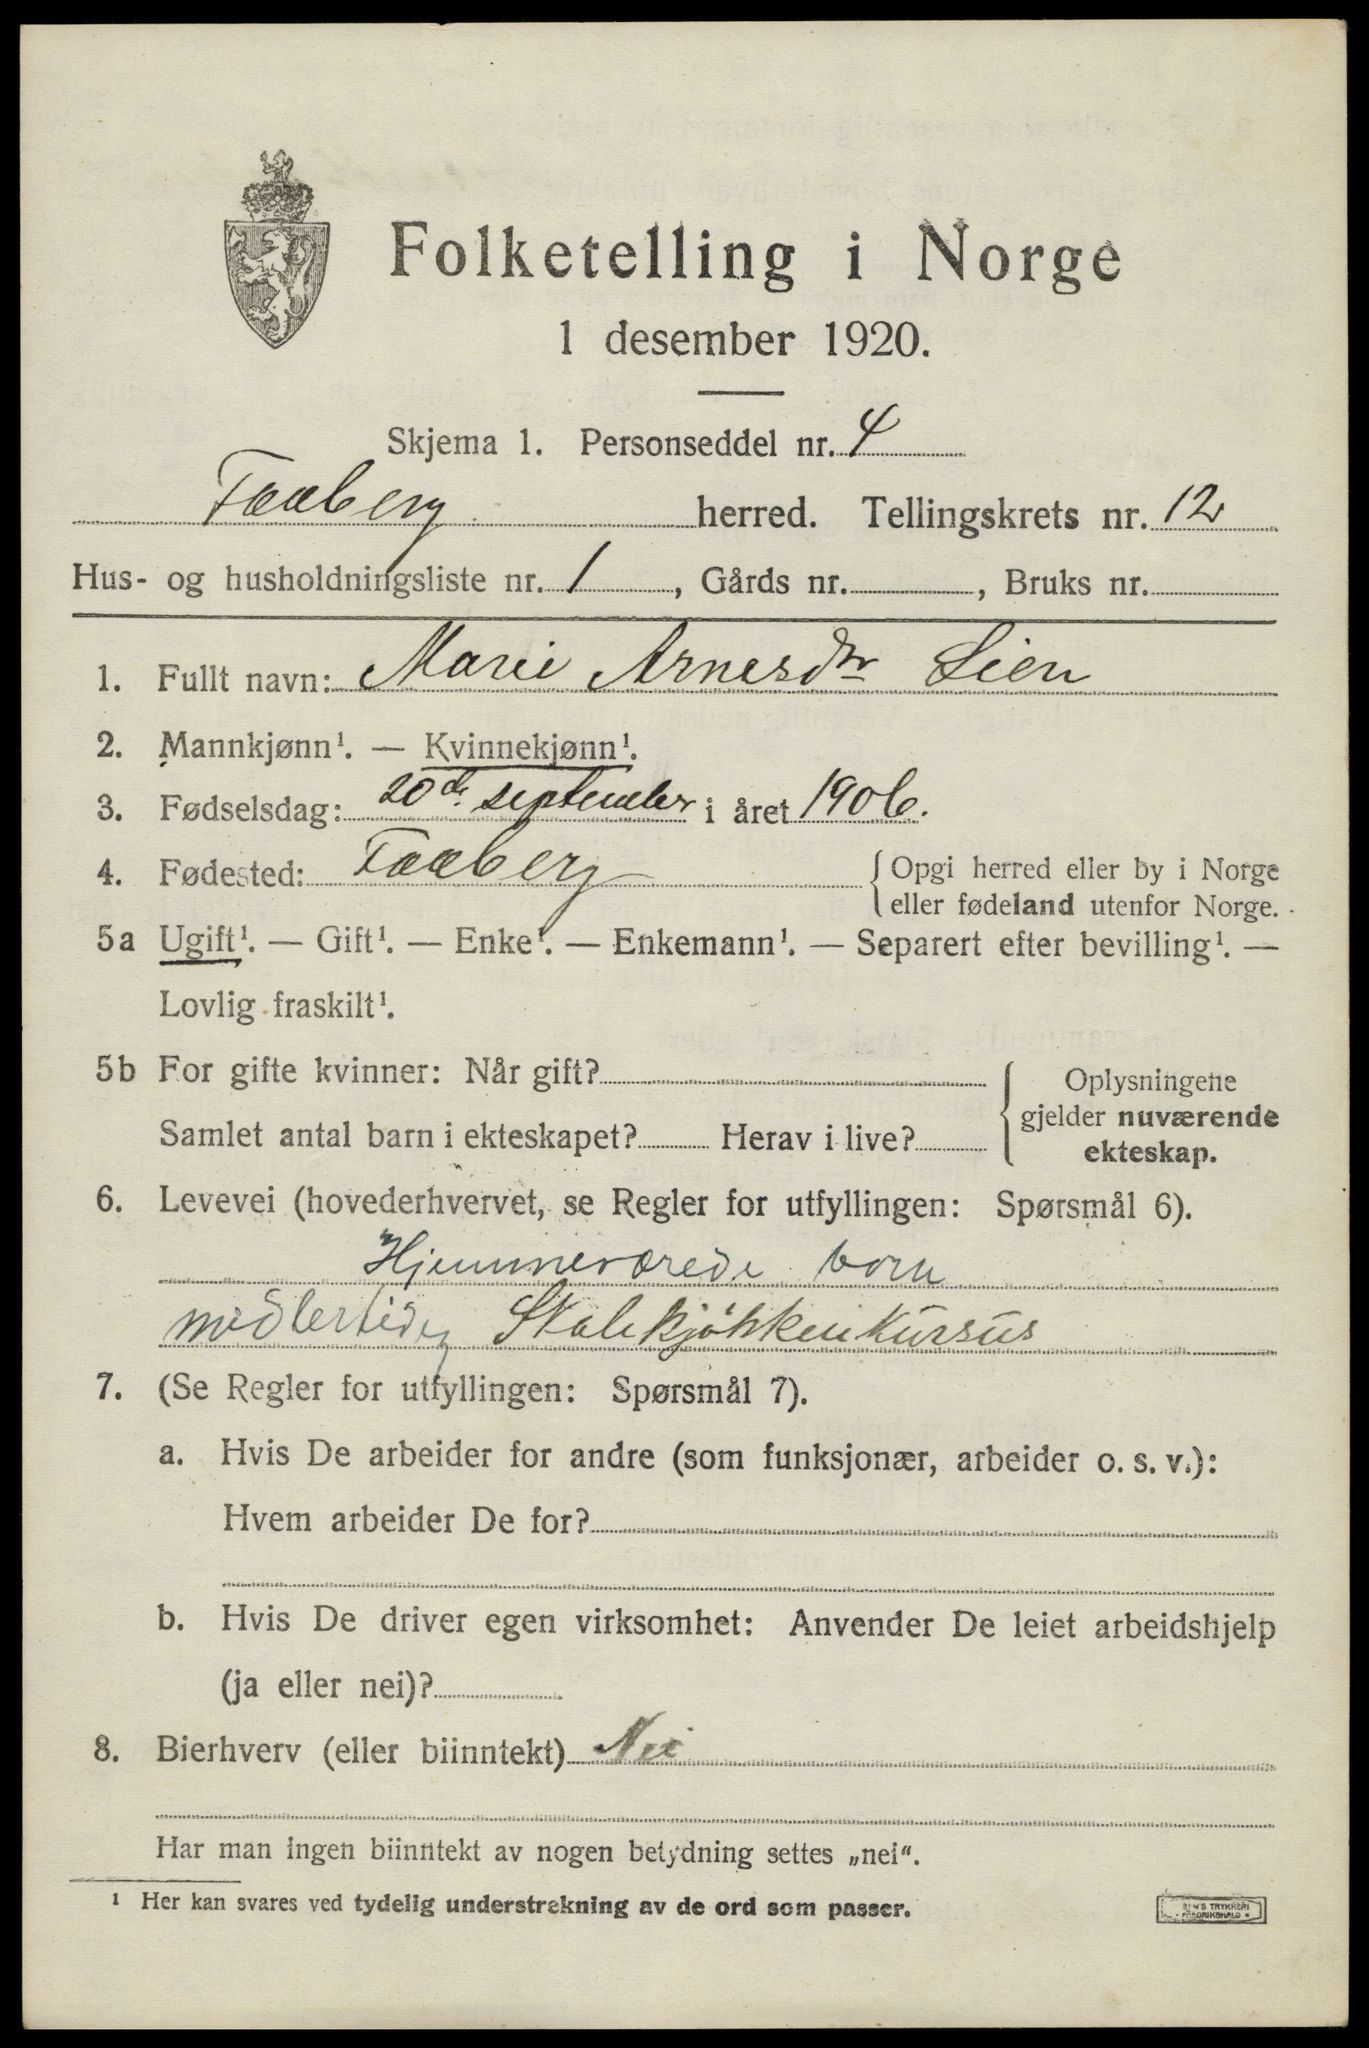 Folketelling i Norge
1 desember 1920.
Skjema 1. Personseddel nr. 4
Faaberg herred. Tellingskrets nr. 12
Hus- og husholdningsliste nr. 1, Gårds nr. , Bruks nr.
1. Fullt navn: Marie Arnesdtr Lien
2. Mannkjønn¹. — Kvinnekjønn¹.
3. Fødselsdag: 20de september i året 1906.
4. Fødested: Faaberg { Opgi herred eller by i Norge
eller fødeland utenfor Norge.
5a Ugift¹. — Gift¹. — Enke¹. — Enkemann¹. — Separert efter bevilling¹. —
Lovlig fraskilt¹.
5b For gifte kvinner: Når gift? { Oplysningene
gjelder nuværende
Samlet antal barn i ekteskapet? Herav i live?
ekteskap.
6. Levevei (hovederhvervet, se Regler for utfyllingen: Spørsmål 6).
Hjemmeværede born
midlertidig Skolekjøkkenkursus
7. (Se Regler for utfyllingen: Spørsmål 7).
a. Hvis De arbeider for andre (som funksjonær, arbeider o. s. v.):
Hvem arbeider De for?
b. Hvis De driver egen virksomhet: Anvender De leiet arbeidshjelp
(ja eller nei)?
8. Bierhverv (eller biinntekt) Nei
Har man ingen biinntekt av nogen betydning settes „nei“.
¹ Her kan svares ved tydelig understrekning av de ord som passer.
TRYKKERI
FREDRIKSHALD